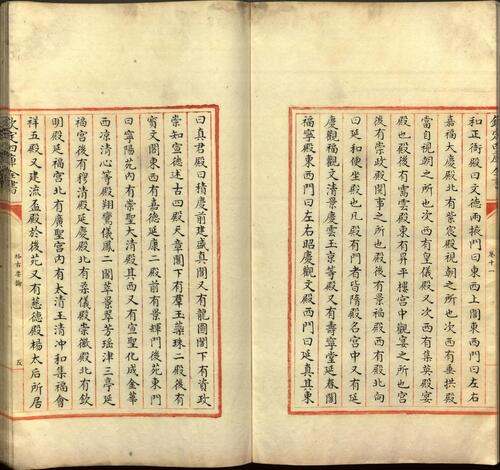 欽定四庫全書
卷十一
和正衙殿曰文德兩掖門曰東西上閤東西門曰左右
嘉福大慶殿北有紫宸殿視朝之所也次西有垂拱殿
當自視朝之所也次西有皇儀殿又次西有集英殿宴
殿也殿後有需雲殿東有昇平樓宫中觀宴之所也宫
後有崇政殿閲事之所也殿後有景福殿西有殿北向
曰延和便坐殿也凡殿有門者皆隋殿名宫中又有延
慶觀福觀文清景慶雲玉京等殿又有壽寧堂延春閣
福寧殿東西門曰左右昭慶觀文殿西門曰延真其東
曰真君殿曰積慶前建盛真閣又有龍圖閣下有資政
崇知宣德述古四殿天章閣下有羣玉蘂珠二殿後有
寳文閣東西有嘉德延康二殿前有景輝門後苑東門
曰寧陽苑内有崇聖大清殿其西又有宣聖化成金華
西凉清心等殿翔鸞儀鳳二閣萃景翠芳瑶津三亭延
福宫後有穆清殿延慶殿北有柔儀殿崇徽殿北有欽
明殿延福宫北有廣聖宫内有太清玉清冲和集福會
祥五殿又建流盃殿於後苑又有慈德殿楊太后所居
欽定四庫全書
格古要論
五